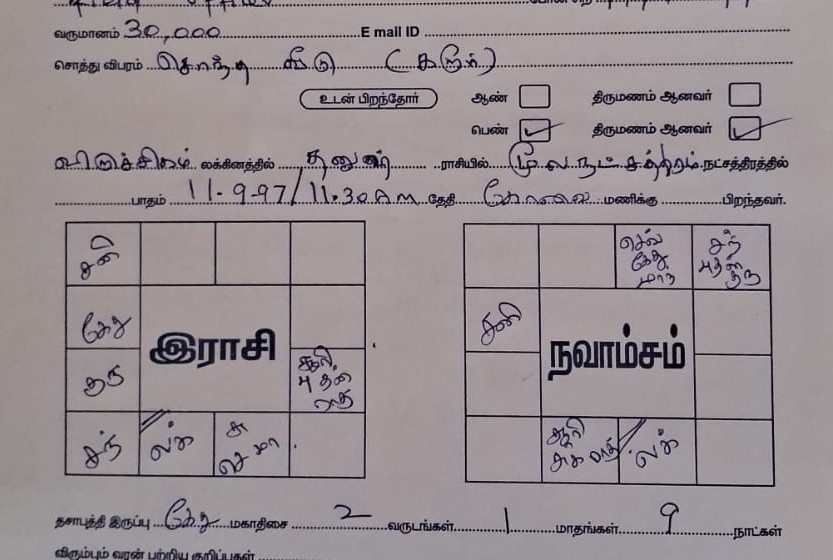 வருமானம் 30,000 E mail ID
சொத்து விபரம் சொந்த வீடு (கரூர்)
உடன் பிறந்தோர் ஆண் திருமணம் ஆனவர்
பெண் ✓ திருமணம் ஆனவர் ✓
விருச்சிகம் லக்கினத்தில் தனுசு ராசியில் மூல நட்சத்திரம் நட்சத்திரத்தில்
பாதம் 11-9-97/11.30 A.m தேதி கோவை மணிக்கு பிறந்தவர்.
சனி
கேது
குரு
சந்
லக்
சு
செ மா
சூரி
புதன்
ராகு
இராசி
செவ்
கேது
மாந்
சந்
புதன்
குரு
சனி
நவாம்சம்
சூரி
சுக் ராகு
லக்
தசாபுத்தி இருப்பு கேது மகாதிசை 2 வருடங்கள் 1 மாதங்கள் 9 நாட்கள்
விரும்பும் வரன் பற்றிய குறிப்புகள்